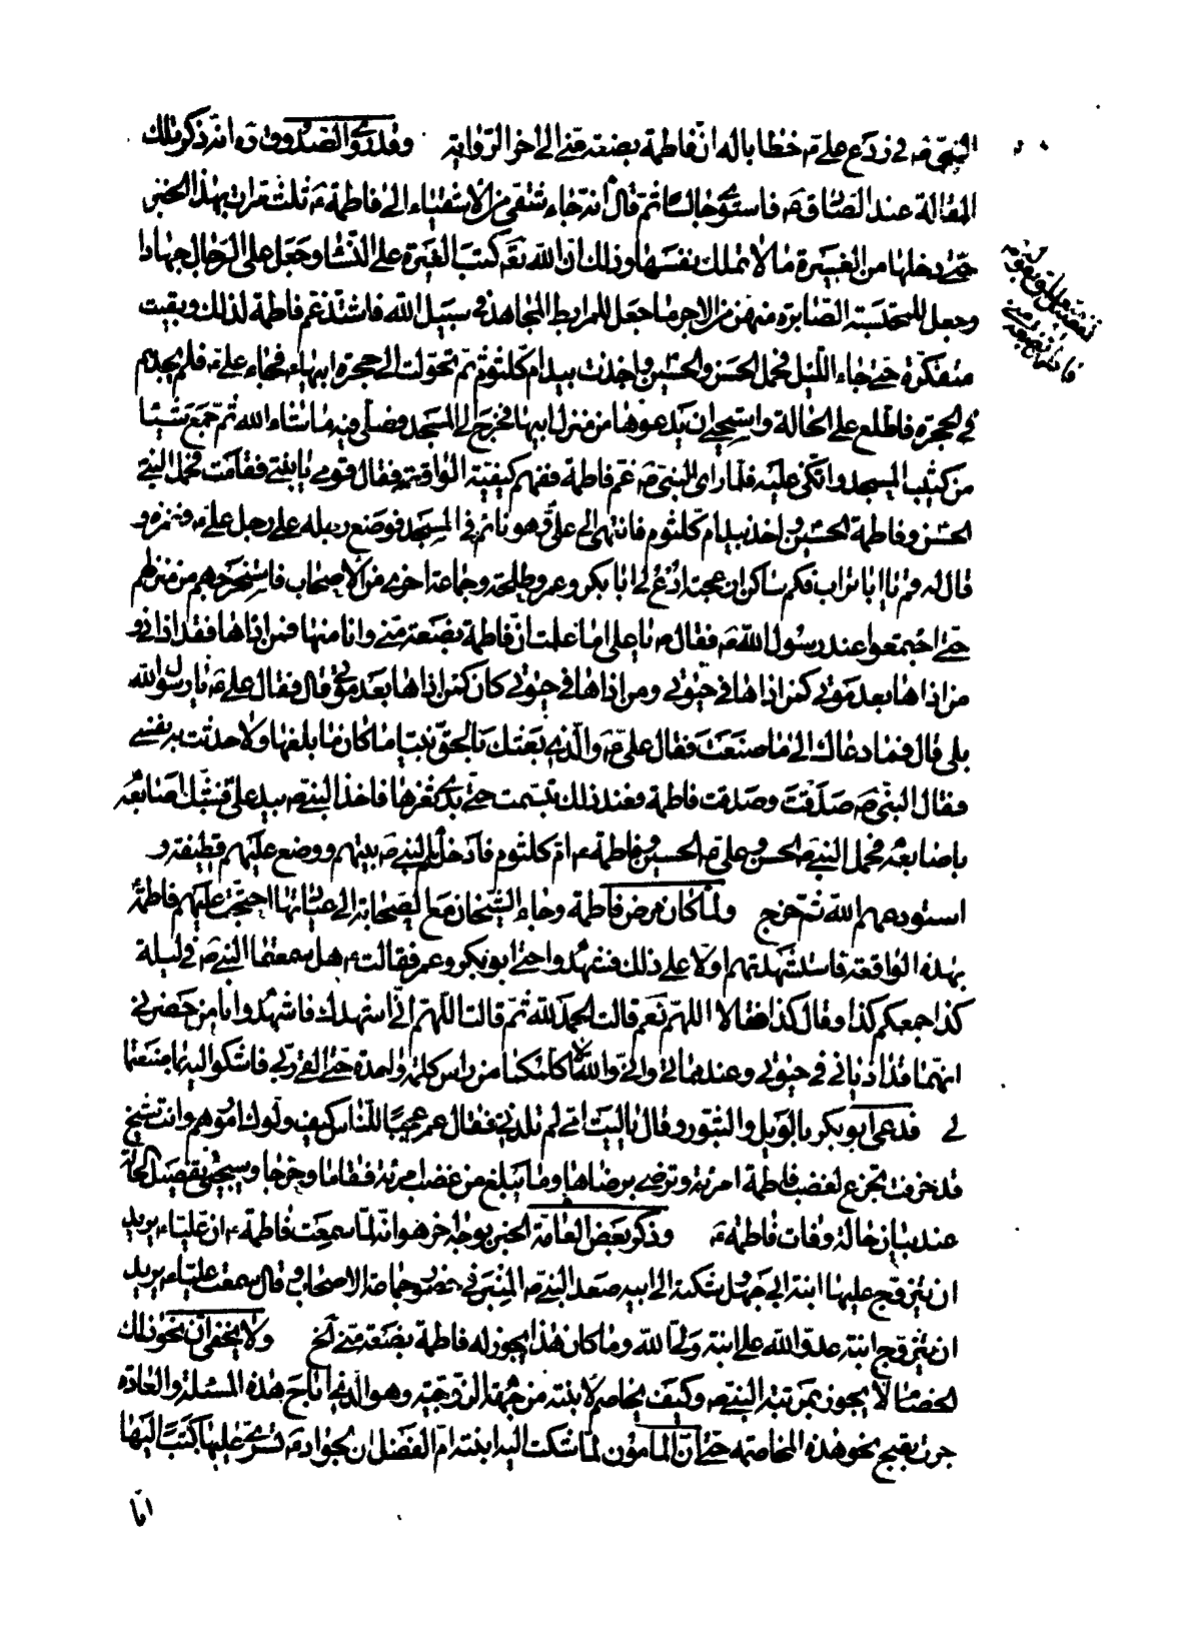 النبي ص في ردع علي ع خطابا له ان فاطمة بضعة مني الى اخر الرواية وقد ذكر الصدوق ره انه ذكر تلك
المقالة عند الصادق ع فاستوى جالسا ثم قال انه جاء شقي من الاشقياء الى فاطمة ع ثلث مرات بهذا الخبر
حتى دخلها من الغيرة ما لا تملك نفسها وذلك ان الله تعه كتب الغيرة على النساء وجعل على الرجال جهادا
وجعل للمحتسبة الصابرة منهن من الاجر ما جعل للمرابط المجاهد في سبيل الله فاشتد غم فاطمة لذلك وبقيت
متفكرة حتى جاء الليل فحمل الحسن والحسين واخذت بيد ام كلثوم ثم تحولت الى حجرة ابيها ص فجاء علي ع فلم يجدهم
في الحجرة فاطلع على الحالة واستحيى ان يدعوها من منزل ابيها فخرج الى المسجد وصلى فيه ما شاء الله ثم جمع شيئا
من كثيب المسجد واتكى عليه فلما راى النبي ص غم فاطمة ففهم كيفية الواقعة فقال قومي يا بنتي فقامت فحمل النبي
الحسن وفاطمة الحسين واخذ بيد ام كلثوم فانتهى الى علي ع وهو نائم في المسجد فوضع رجله على رجل علي ع وغمزه و
قال له قم يا ابا تراب فكم ساكن ازعجته ادع لي ابا بكر وعمر وطلحة وجماعة اخرى من الاصحاب فاستخرجهم من منزلهم
حتى اجتمعوا عند رسول الله ص فقال ص يا علي اما علمت ان فاطمة بضعة مني وانا منها فمن اذاها فقد اذاني و
من اذاها بعد موتي كمن اذاها في حيوتي ومن اذاها في حيوتي كان كمن اذاها بعد موتي قال فقال علي ع يا رسول الله
بلى قال فما دعاك الى ما صنعت فقال علي ع والذي بعثك بالحق نبيا ما كان مما بلغها ولا حدثت به نفسي
فقال النبي ص صدقت وصدقت فاطمة فعند ذلك تبسمت حتى بدى ثغرها فاخذ النبي ص بيد علي فشبك اصابعه
باصابعه فحمل النبي ص الحسن وعلي ع الحسين وفاطمة ع ام كلثوم فادخلهم النبي ص بيتهم ووضع عليهم قطيفة و
استودعهم الله ثم خرج ولما كان مرض فاطمة وجاء الشيخان مع الصحابة الى عيادتها احتجت عليهم فاطمة
بهذه الواقعة فاستشهدتهم اولا على ذلك فشهدوا حتى ابو بكر وعمر فقالت ع هل سمعتما النبي ص في ليلة
كذا جمعكم كذا وقال كذا فقالا اللهم نعم قالت الحمد لله ثم قالت اللهم اني اشهدك فاشهدوا يا من حضرني
انهما قد اذياني في حيوتي وعند مماتي واني والله لا كلمتكما من راس كلمة واحدة حتى القى ربي فاشكو اليه بما صنعتما
لي فدعى ابو بكر بالويل والثبور وقال يا ليت امي لم تلدني فقال عمر عجبا للناس كيف ولوك امورهم وانت شيخ
قد خرفت تجزع لغضب فاطمة امرئة وترضى برضاها وما يبلغ من غضب امرئة فقاما وخرجا وسيجئ تفصيل الحالة
عند بيان حالة وفات فاطمة ع وذكر بعض العامة الخبر بوجه اخر هو انه لما سمعت فاطمة ع ان عليا ع يريد
ان يتزوج عليها ابنة ابي جهل شكته الى ابيه صعد النبي ص المنبر في حضور جماعة الاصحاب وقال سمعت عليا ع يريد
ان يتزوج ابنة عدو الله على ابنة ولي الله وما كان هذا يجوز له فاطمة بضعة مني الخ ولا يخفى ان نحو ذلك
ايضا لا يجوز بمرتبة النبي ص وكيف يخاصم لابنته من جهة الزوجية وهو الذي اباح هذه المسئلة والعادة
جرت بقبح نحو هذه المخاصمة حتى ان المامون لما شكت اليه ابنته ام الفضل ان الجواد ع تسرى عليها كتب اليها
اما